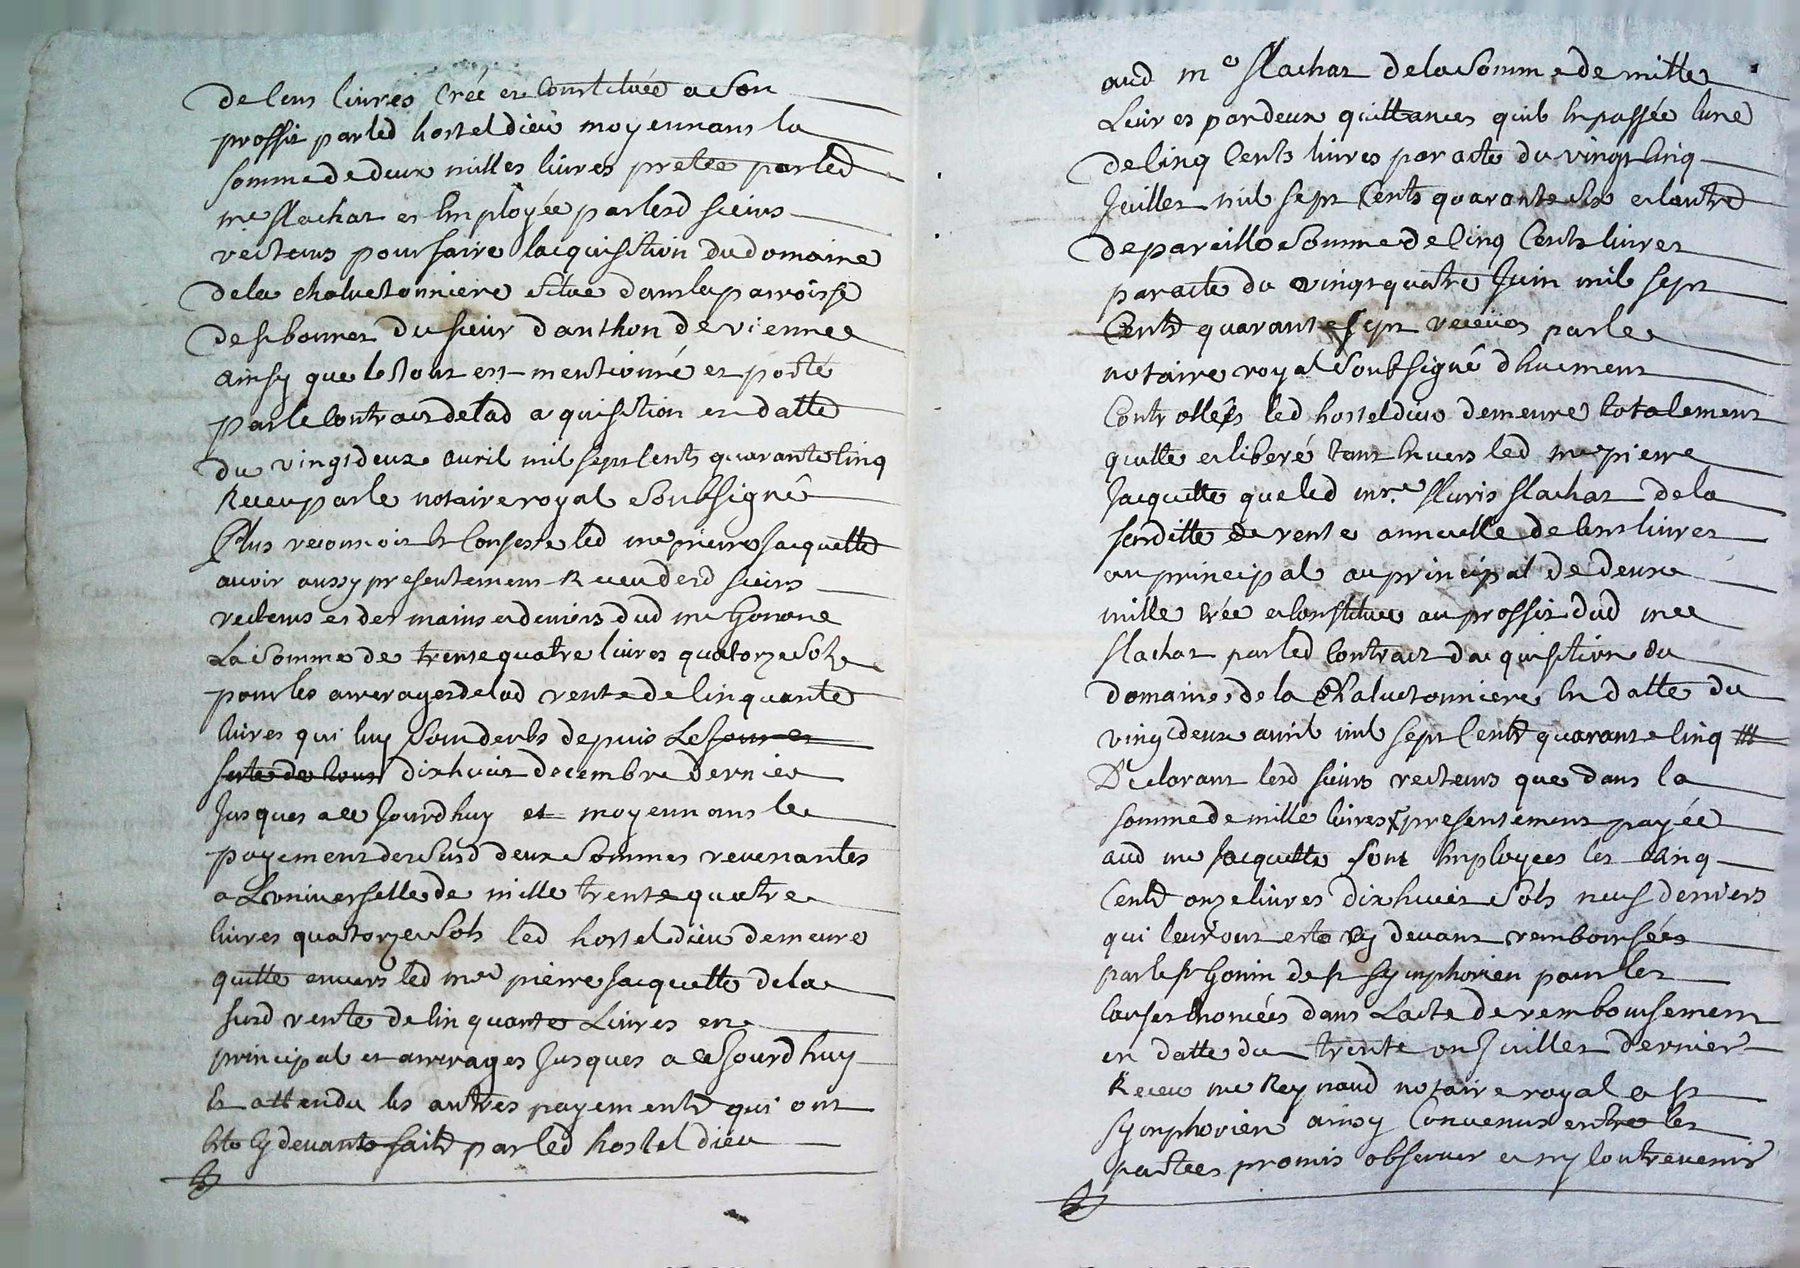 de Cens livres Créé et Constituée a Son
proffit par led hostel dieu moyennans la
somme de deux milles livres pretée par led
me flachat et Employée par lesd sieurs
recteurs pour faire lacquisition du domaine
de la chaluetonniere situé dans la parroisse
de st bonnet du sieur danthon de vienne
ainsy que le tout est mentionné et porté
par le Contract de lad aquisition en datte
du vingt deux avril mil sept Cents quarante Cinq
Receu par le notaire royal Soubsigné
Plus reconnoit et Confesse led me pierre Jacquette
avoir aussy presentement Receu desd sieurs
recteurs et des mains et deniers dud me Gonone
La Somme de trente quatre livres quatorze Sols
pour les arrerages de lad rente de Cinquante
livres qui luy Sont deubs depuis Le jour et
feste de tous dixhuit decembre dernier
Jusques a ce Jourdhuy et moyennans le
payement des susd deux Sommes revenantes
a Luniverselle de mille trente quatre
livres quatorze Sols led hostel dieu demeure
quitte envers led me pierre Jacquette de la
susd rente de Cinquante Livres en
principal et arrerages Jusques a ce Jourdhuy
Et attendu les autres payements qui ont
Ete Cy devants faits par led hostel dieu
aud me flachat de la Somme de mille
Livres par deux quittances quil En passée lune
de Cinq Cents livres par acte du vingt Cinq
Juillet mil sept Cents quarante Six et lautre
de pareille Somme de Cinq Cents livres
par acte du vingt quatre Juin mil sept
Cents quarante sept receües par le
notaire royal Soubsigné dhuement
Controllées led hostel dieu demeure totalement
quitte et liberé tant Envers led me pierre
Jacquette que led mre fluris flachat de la
susditte de rente annuelle de Cens livres
au principal au principal de deux
mille Crée et Constituée au proffit dud me
flachat par led Contract dacquisition du
domaine de la Chaluetonniere En datte du
vingt deux avril mil sept Cents quarante Cinq
Declarant lesd sieurs recteurs que dans la
somme de mille livres presentement payée
aud me Jacquette sont Employees les Cinq
Cents onze livres dixhuit Sols neuf deniers
qui leur ont esté Cy devant remboursées
par le sr Gonin de st Symphorien pour les
Causes Enoncées dans Lacte de remboursement
en datte du trente un Juillet dernier
Receu me Reynaud notaire royal a st
Symphorien ainsy Convenus entre les
parties promis observer et ny Contrevenir